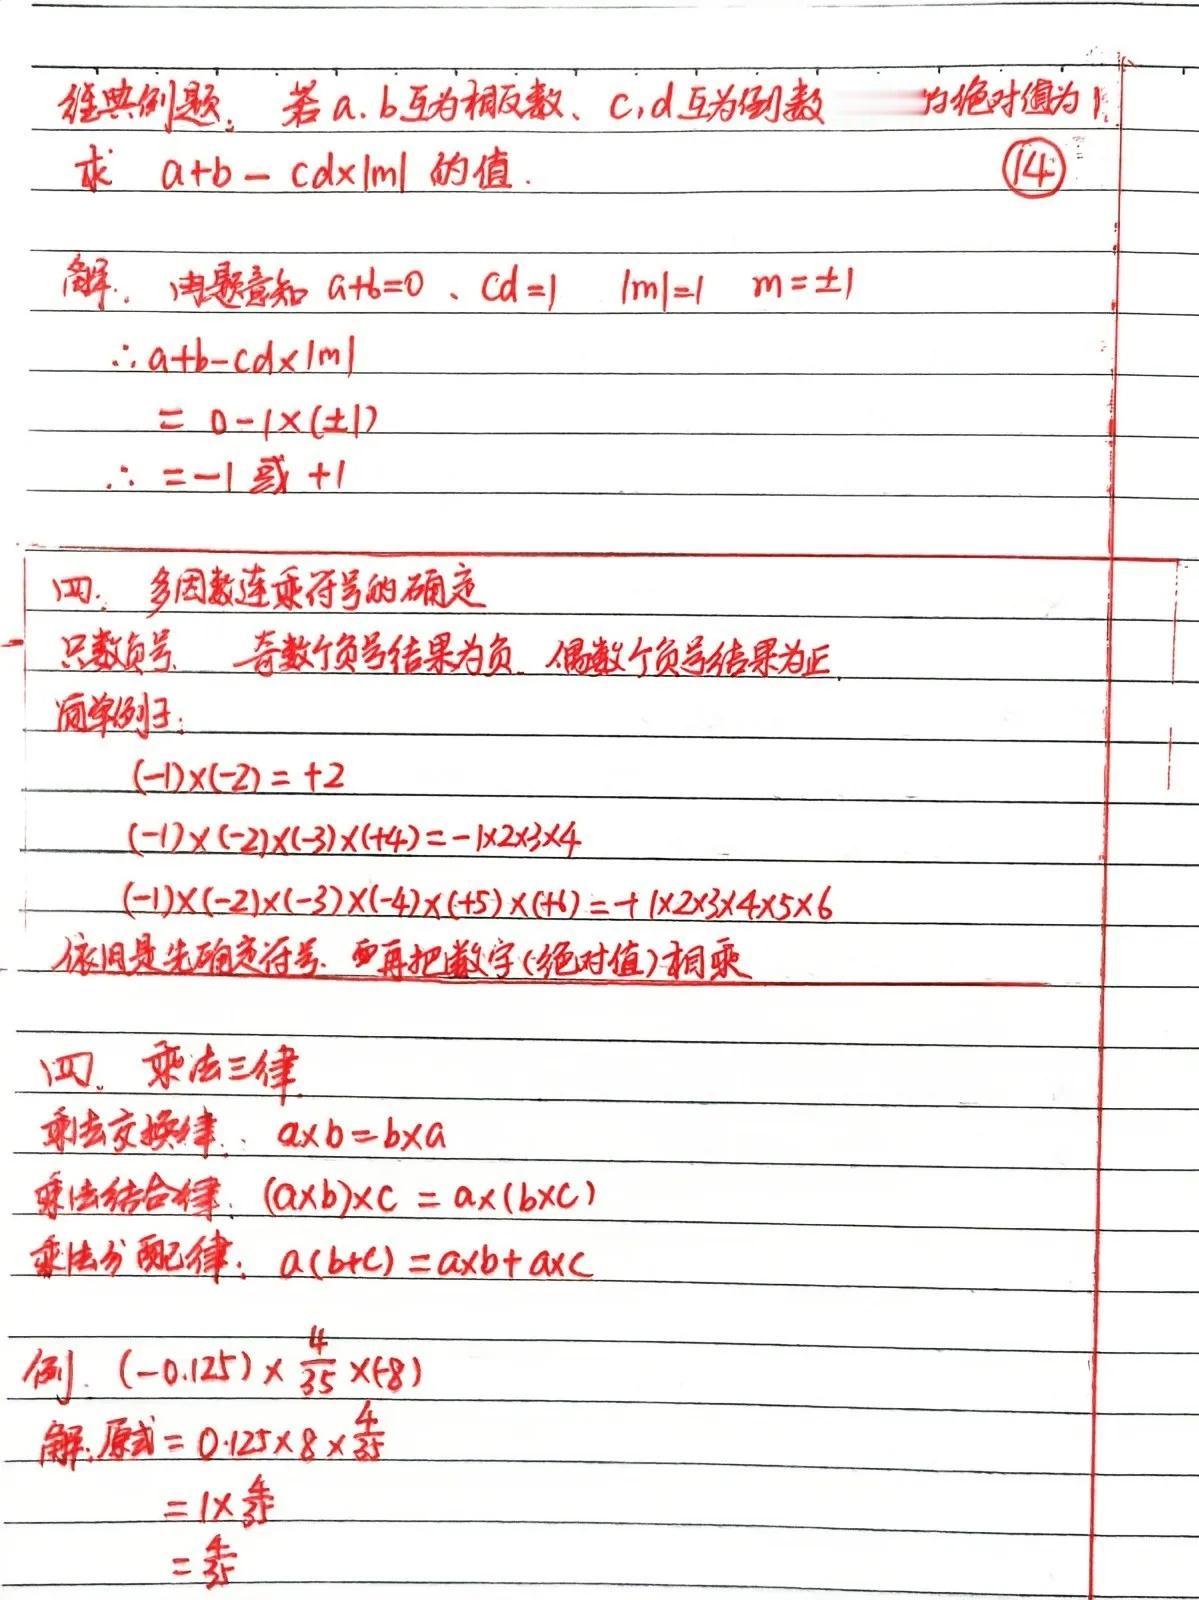 经典例题. 若a.b互为相反数、c,d互为倒数 的绝对值为1
求 a+b-cd×|m| 的值.
⑭
解. 由题意知 a+b=0、cd=1 |m|=1 m=±1
∴a+b-cd×|m|
= 0-1×(±1)
∴ =-1 或 +1
四. 多因数连乘符号的确定
只数负号. 奇数个负号结果为负. 偶数个负号结果为正.
简单例子:
(-1)×(-2)=+2
(-1)×(-2)×(-3)×(+4)=-1×2×3×4
(-1)×(-2)×(-3)×(-4)×(+5)×(+6)=+1×2×3×4×5×6
依旧是先确定符号. 再把数字(绝对值)相乘
四. 乘法三律
乘法交换律: a×b=b×a
乘法结合律: (a×b)×c=a×(b×c)
乘法分配律: a(b+c)=a×b+a×c
例. (-0.125)×4/35×(-8)
解:原式=0.125×8×4/35
=1×4/35
=4/35